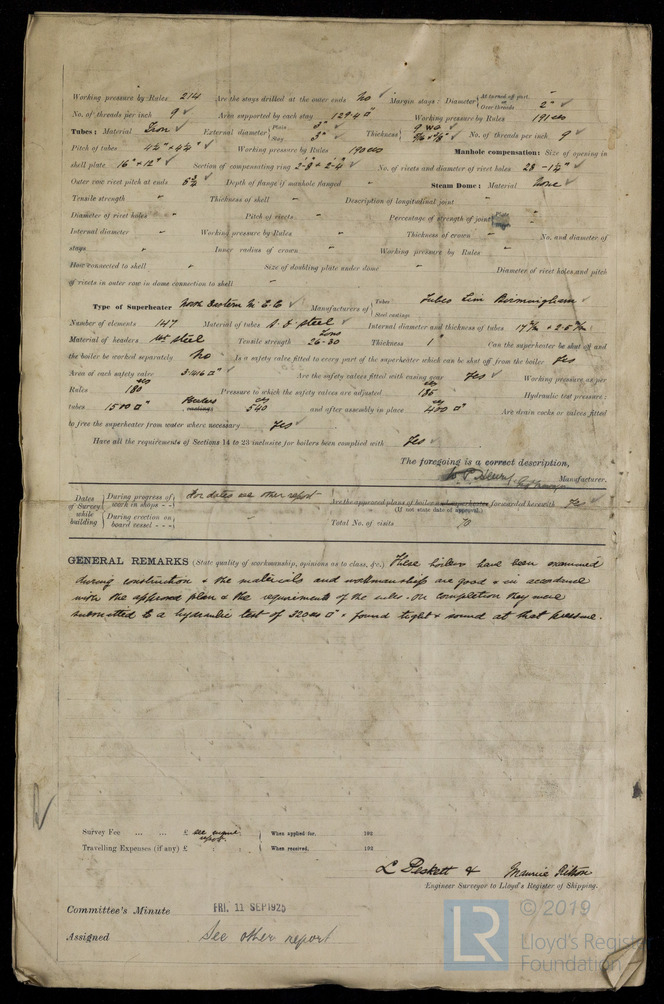 Working pressure by Rules 214 Are the stays drilled at the outer ends No Margin stays: Diameter { At turned off part, " or Over threads 2" 
No. of threads per inch 9 Area supported by each stay Working pressure by Rules
Tubes: Material Iron External diameter { Plain 3" Stay 3" Thickness { 9 WG No. of threads per inch 9
Pitch of tubes 4¼" × 4¼" Working pressure by Rules Manhole compensation: Size of opening in
shell plate 16" × 12" Section of compensating ring No. of rivets and diameter of rivet holes 28 - 1¼"
Outer row rivet pitch at ends Depth of flange if manhole flanged " Steam Dome: Material None
Tensile strength " Thickness of shell " Description of longitudinal joint "
Diameter of rivet holes " Pitch of rivets " Percentage of strength of joint { Plate Rivets
Internal diameter " Working pressure by Rules " Thickness of crown " No. and diameter of
stays " Inner radius of crown " Working pressure by Rules "
How connected to shell " Size of doubling plate under dome " Diameter of rivet holes and pitch
of rivets in outer row in dome connection to shell "
Type of Superheater North Eastern M.E.Co Manufacturers of { Tubes Tubes Lim Birmingham
Steel castings
Number of elements 147 Material of tubes S.D. steel Internal diameter and thickness of tubes
Material of headers steel Tensile strength 26-30 Tons Thickness 1" Can the superheater be shut off and
the boiler be worked separately No Is a safety valve fitted to every part of the superheater which can be shut off from the boiler Yes
Area of each safety valve 3.1416 □" Are the safety valves fitted with easing gear Yes Working pressure as per
Rules 180 lbs Pressure to which the safety valves are adjusted 185 lbs Hydraulic test pressure:
tubes 1500 □" castings 540 lbs and after assembly in place 400 lbs □" Are drain cocks or valves fitted
to free the superheater from water where necessary Yes
Have all the requirements of Sections 14 to 23 inclusive for boilers been complied with Yes
The foregoing is a correct description,
Manufacturer.
Dates of Survey while building { During progress of work in shops - - } For dates see other report Are the approved plans of boiler and superheater forwarded herewith Yes
(If not state date of approval.)
{ During erection on board vessel - - - } Total No. of visits 70
GENERAL REMARKS (State quality of workmanship, opinions as to class, &c.) These boilers have been examined
during construction & the materials and workmanship are good & in accordance
with the approved plan & the requirements of the rules. On completion they were
submitted to a hydraulic test of 320 lbs □" & found tight & sound at that pressure.
Survey Fee ... ... £ see engine report. When applied for, 192
Travelling Expenses (if any) £ : : When received, 192
L Peskett &
Engineer Surveyor to Lloyd's Register of Shipping.
Committee's Minute FRI. 11 SEP 1925
Assigned See other report
© 2019
LR Lloyd's Register
Foundation